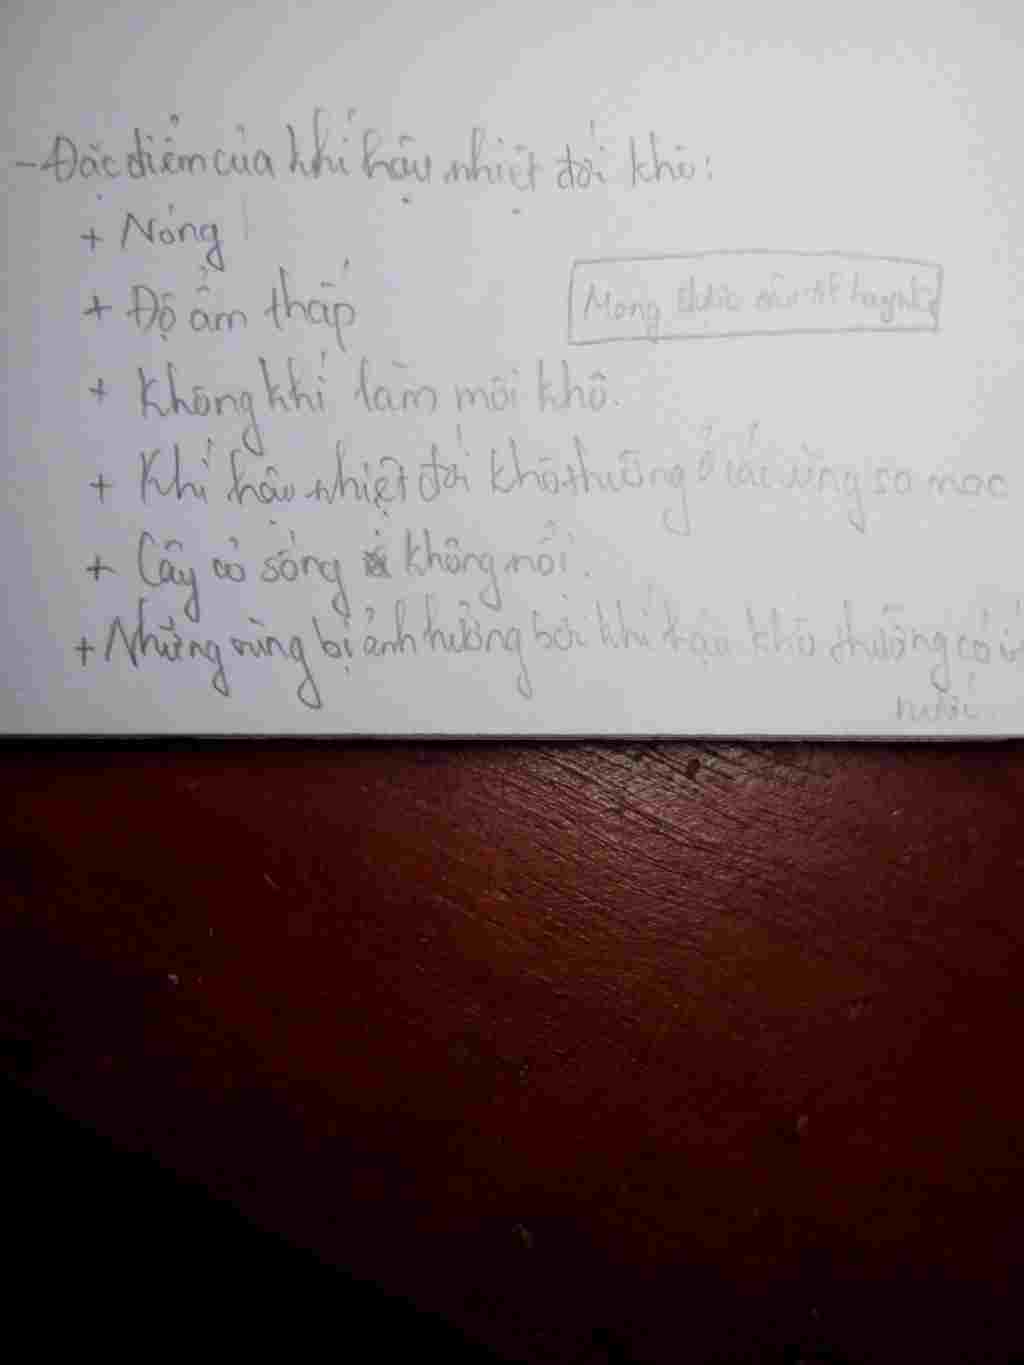 - Đặc điểm của khí hậu nhiệt đới khô:
+ Nóng
+ Độ ẩm thấp
Mong được
+ Không khí làm môi khô.
+ Khí hậu nhiệt đới khô thường ở các vùng sa mạc
+ Cây cỏ sống không nổi.
+ Những vùng bị ảnh hưởng bởi khí hậu khô thường có ít
nước.